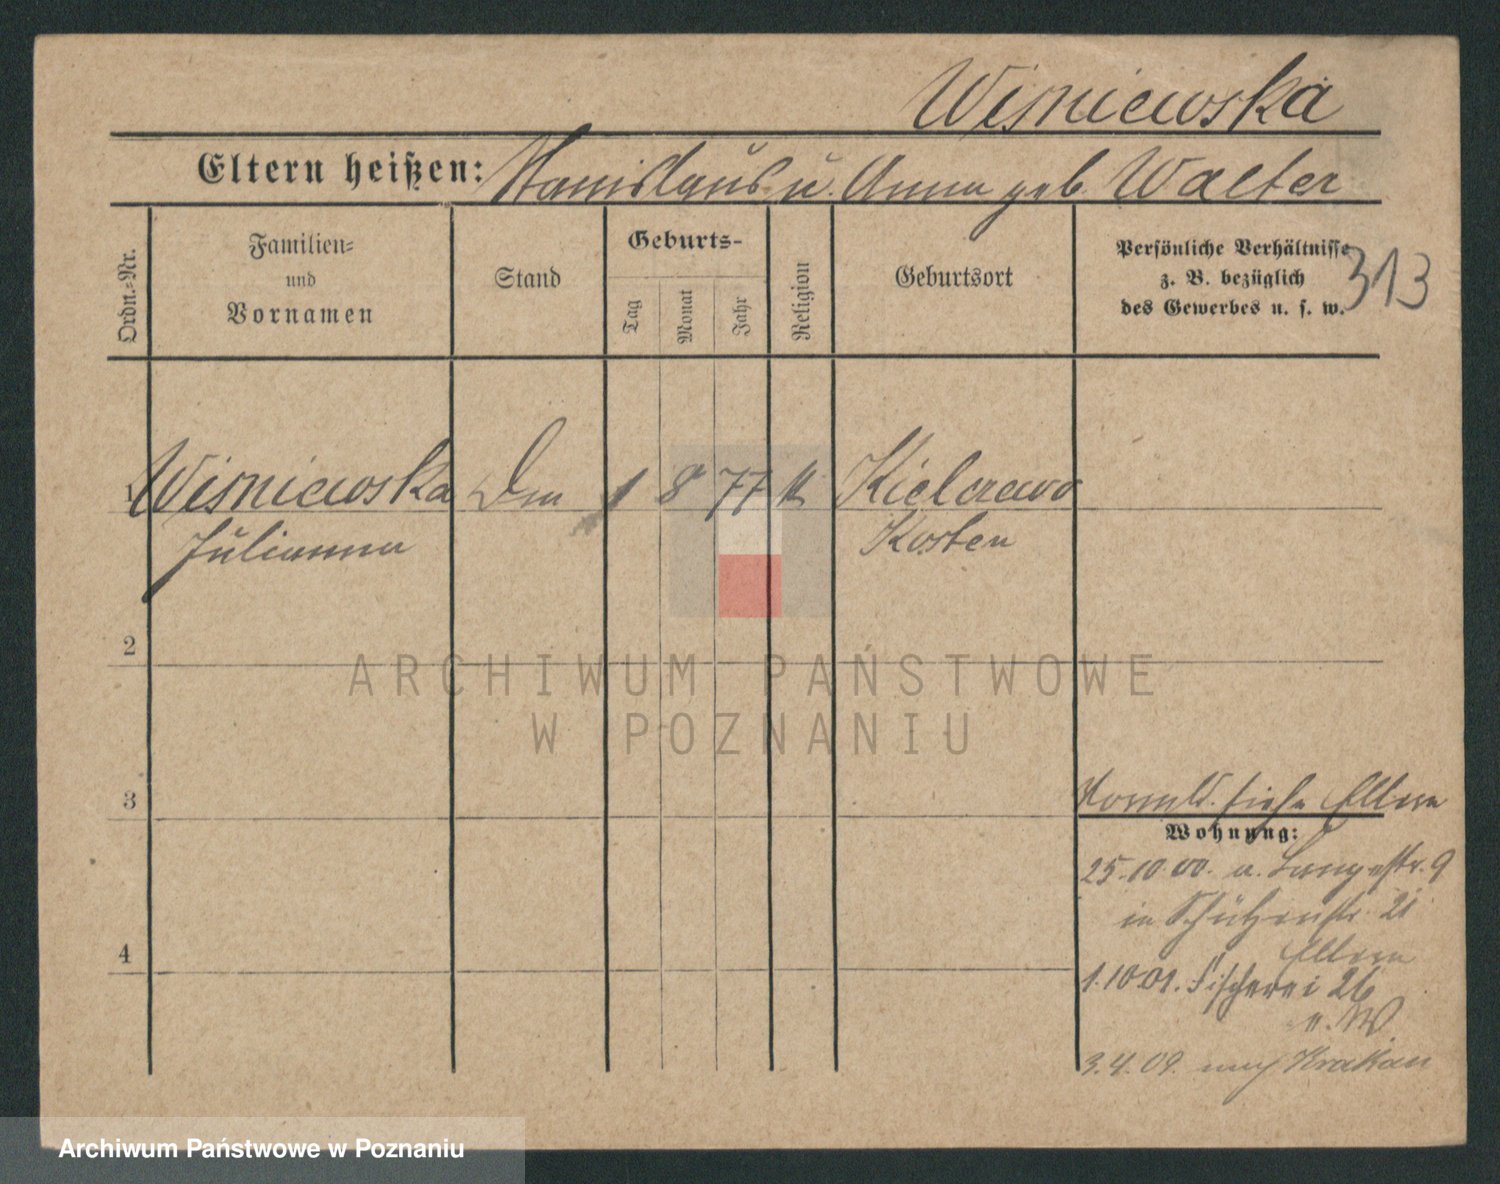 Wisniewska
Eltern heißen: Stanislaus u. Anna geb Walter
Ordn.-Nr.
Familien-
und
Vornamen
Stand
Geburts-
Tag
Monat
Jahr
Religion
Geburtsort
Persönliche Verhältnisse
z. B. bezüglich
des Gewerbes u. s. w.
313
1 Wisniewska 1 8 77 k Kielczewo
Julianna Kosten
2
3
4
siehe Eltern
Wohnung:
25.10.00. a. Langestr. 9
in Schützenstr. 21
Eltern
1.10.01. Fischerei 26
3.4.09. nach Krakau
ARCHIWUM PAŃSTWOWE
W POZNANIU
Archiwum Państwowe w Poznaniu